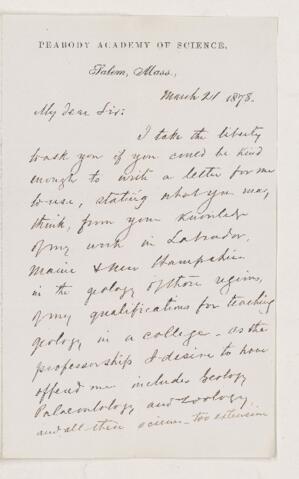 PEABODY ACADEMY OF SCIENCE,
Salem, Mass.,
March 21 1878.
My dear Sir:
I take the liberty
to ask you if you could be kind
enough to write a letter for me
to use, stating what you may
think, from your knowledge
of my work in Labrador,
Maine & New Hampshire
in the geology of those regions,
of my qualifications for teaching
geology in a college - as the
professorship I desire to have
offered me includes Geology
Palaeontology and Zoology
and all these sciences too extensive